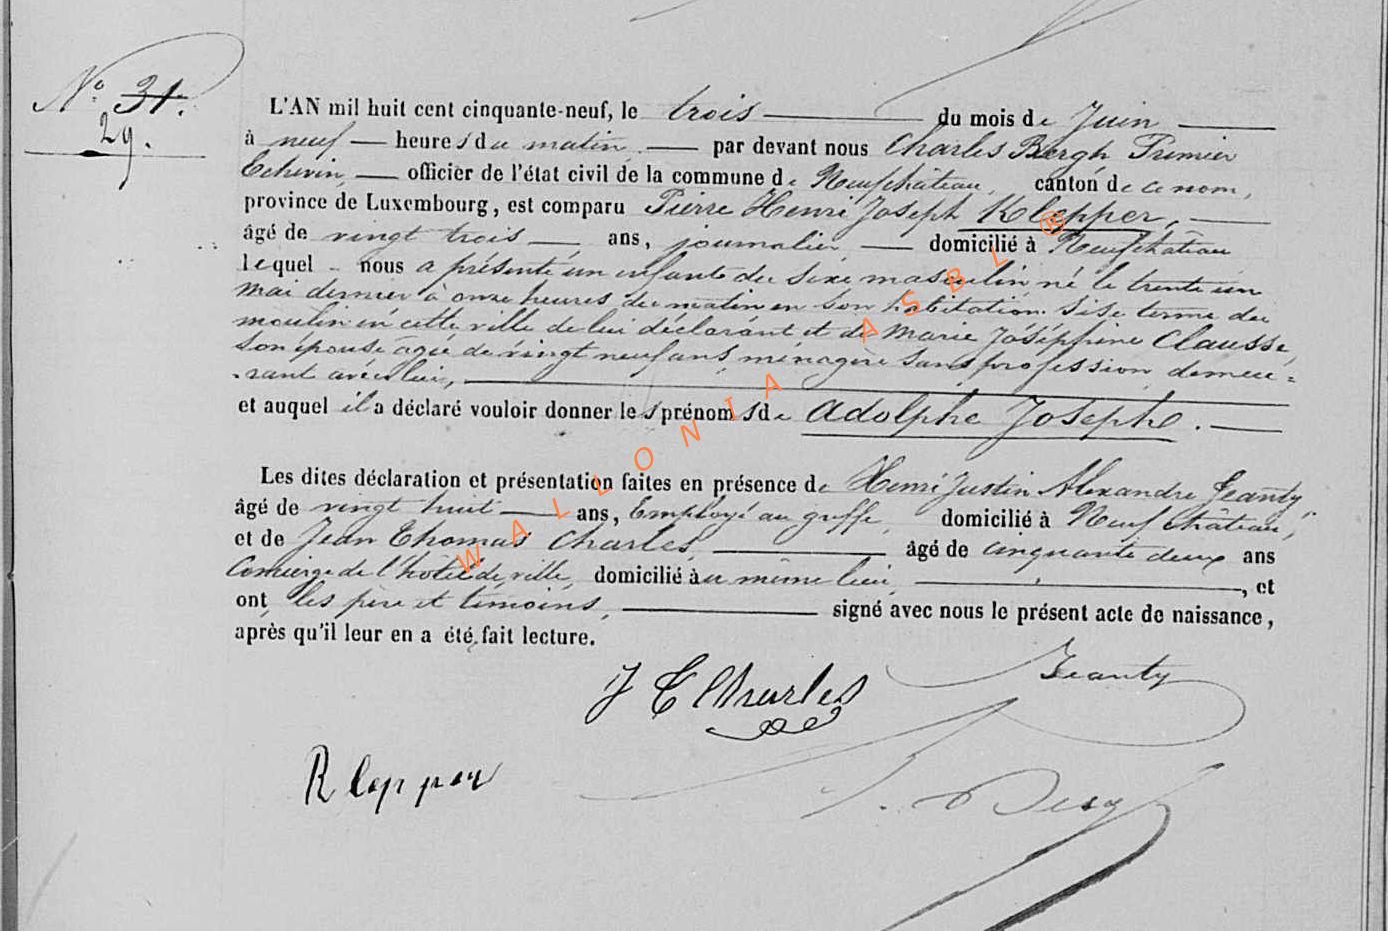 N° 31.
29.
L'AN mil huit cent cinquante-neuf, le trois du mois de Juin
à neuf heures du matin par devant nous Charles Bergh Premier
Echevin, officier de l'état civil de la commune de Neufchâteau, canton de ce nom,
province de Luxembourg, est comparu Pierre Henri Joseph Klepper,
âgé de vingt trois ans, journalier, domicilié à Neufchâteau
lequel nous a présenté un enfant du sexe masculin né le trente un
mai dernier à onze heures du matin en son habitation sise terme du
moulin en cette ville de lui déclarant et de Marie Joséphine Clausse,
son épouse âgée de vingt neuf ans ménagère sans profession demeu=
rant avec lui,
et auquel il a déclaré vouloir donner les prénoms de Adolphe Josephe.
Les dites déclaration et présentation faites en présence de Henri Justin Alexandre Jeanty
âgé de vingt huit ans, Employé au greffe, domicilié à Neufchâteau,
et de Jean Thomas Charles, âgé de cinquante deux ans
Concierge de l'hôtel de ville, domicilié au même lieu, et
ont les père et témoins, signé avec nous le présent acte de naissance,
après qu'il leur en a été fait lecture.
J T Charles Jeanty
Klepper
WALLONIA ASBL ®